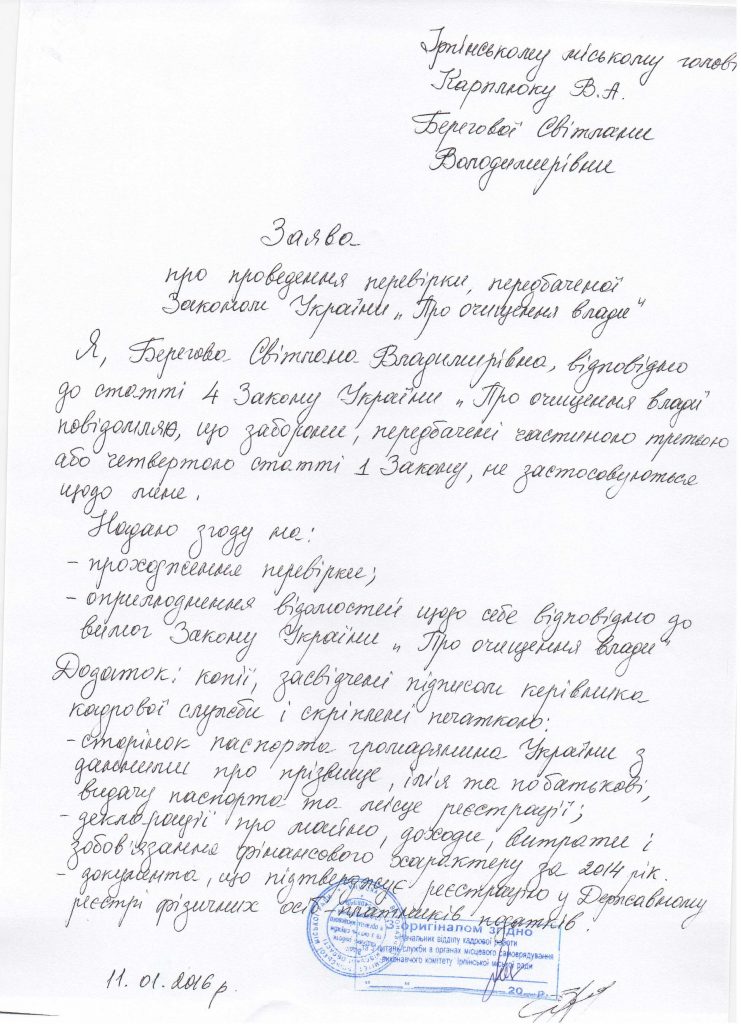 Ірпінському міському голові
Карплюку В.А.
Берегової Світлани
Володимирівни
Заява
про проведення перевірки, передбаченої
Законом України „Про очищення влади"
Я, Берегова Світлана Владимирівна, відповідно
до статті 4 Закону України „Про очищення влади"
повідомляю, що заборони, передбачені частиною третьою
або четвертою статті 1 Закону, не застосовуються
щодо мене.
Надаю згоду на:
- проходження перевірки;
- оприлюднення відомостей щодо себе відповідно до
вимог Закону України „Про очищення влади"
Додаток: копії, засвідчені підписом керівника
кадрової служби і скріплені печаткою:
- сторінок паспорта громадянина України з
даними про прізвище, ім'я та по батькові,
видачу паспорта та місце реєстрації;
- декларації про майно, доходи, витрати і
зобов'язання фінансового характеру за 2014 рік.
- документа, що підтверджує реєстрацію у Державному
реєстрі фізичних осіб - платників податків.
З оригіналом згідно
начальник відділу кадрової роботи
та питань служби в органах місцевого самоврядування
виконавчого комітету Ірпінської міської ради
20 р.
11.01.2016 р.